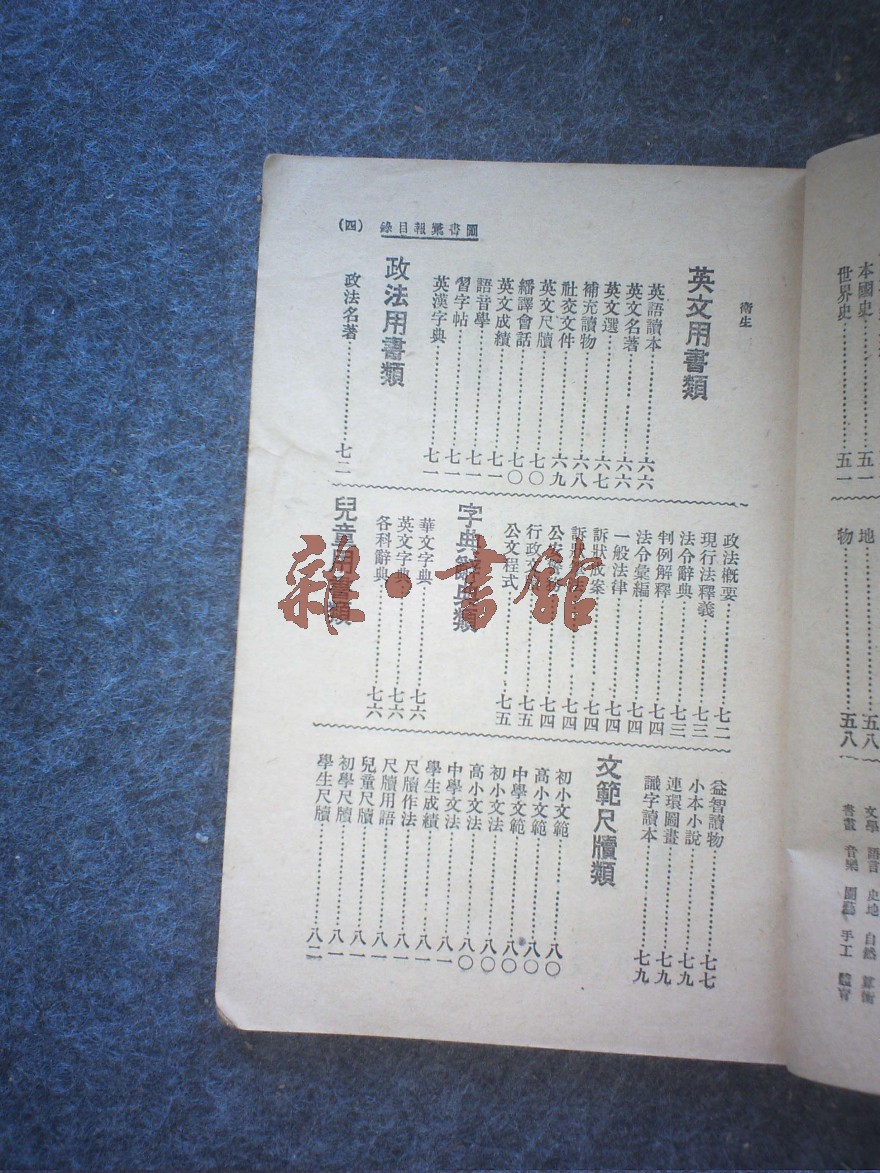 本國史……五一
世界史……五一
地……五八
物……五八
文學 語言 史地 自然 算術
書畫 音樂 園藝 手工 體育
圖書彙報目錄 (四)
衛生
英文用書類
英語讀本……六六
英文名著……六六
英文選……六七
補充讀物……六八
社交文件……六九
英文尺牘……七〇
繙譯會話……七〇
英文成績……七一
語音學……七一
習字帖……七一
英漢字典……七一
政法用書類
政法名著……七二
政法概要……七二
現行法釋義……七三
法令辭典……七三
判例解釋……七四
法令彙編……七四
一般法律……七四
訴狀文案……七四
訴狀 法……七四
公文……七四
行政文……七五
公文程式……七五
字典辭典類
華文字典……七六
英文字典……七六
各科辭典……七六
兒童用書類
益智讀物……七七
小本小說……七九
連環圖畫……七九
識字讀本……七九
文範尺牘類
初小文範……八〇
高小文範……八〇
中學文範……八〇
初小文法……八〇
高小文法……八〇
中學文法……八一
學生成績……八一
尺牘作法……八一
尺牘用語……八一
兒童尺牘……八一
初學尺牘……八一
學生尺牘……八二
雜·書館